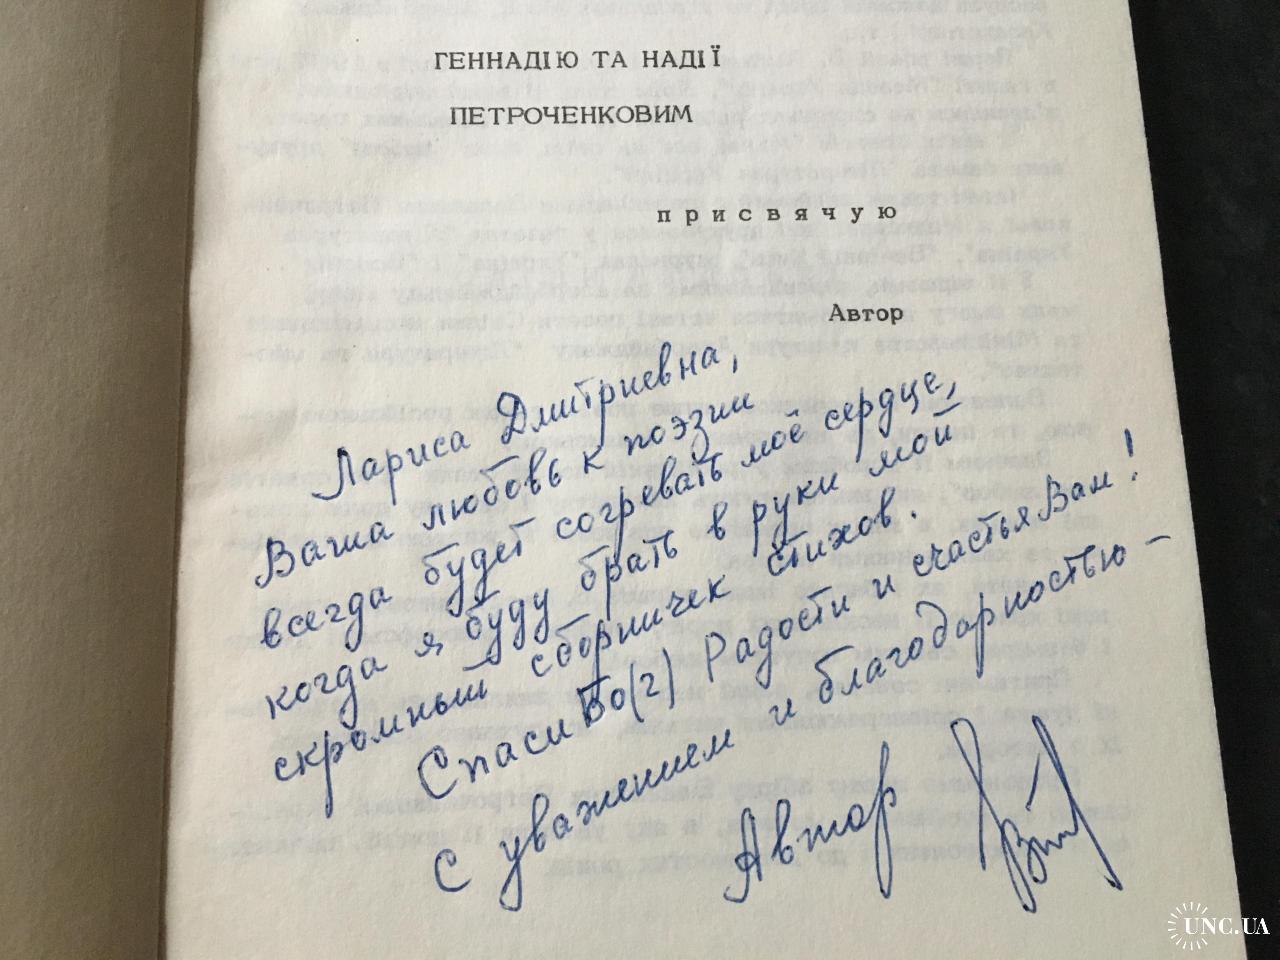 ГЕННАДІЮ ТА НАДІЇ
ПЕТРОЧЕНКОВИМ
присвячую
Автор
Лариса Дмитриевна,
Ваша любовь к поэзии
всегда будет согревать моё сердце,
когда я буду брать в руки мой
скромный сборничек стихов.
Спаси Бо(г) Радости и счастья Вам!
С уважением и благодарностью –
Автор
UNC.UA